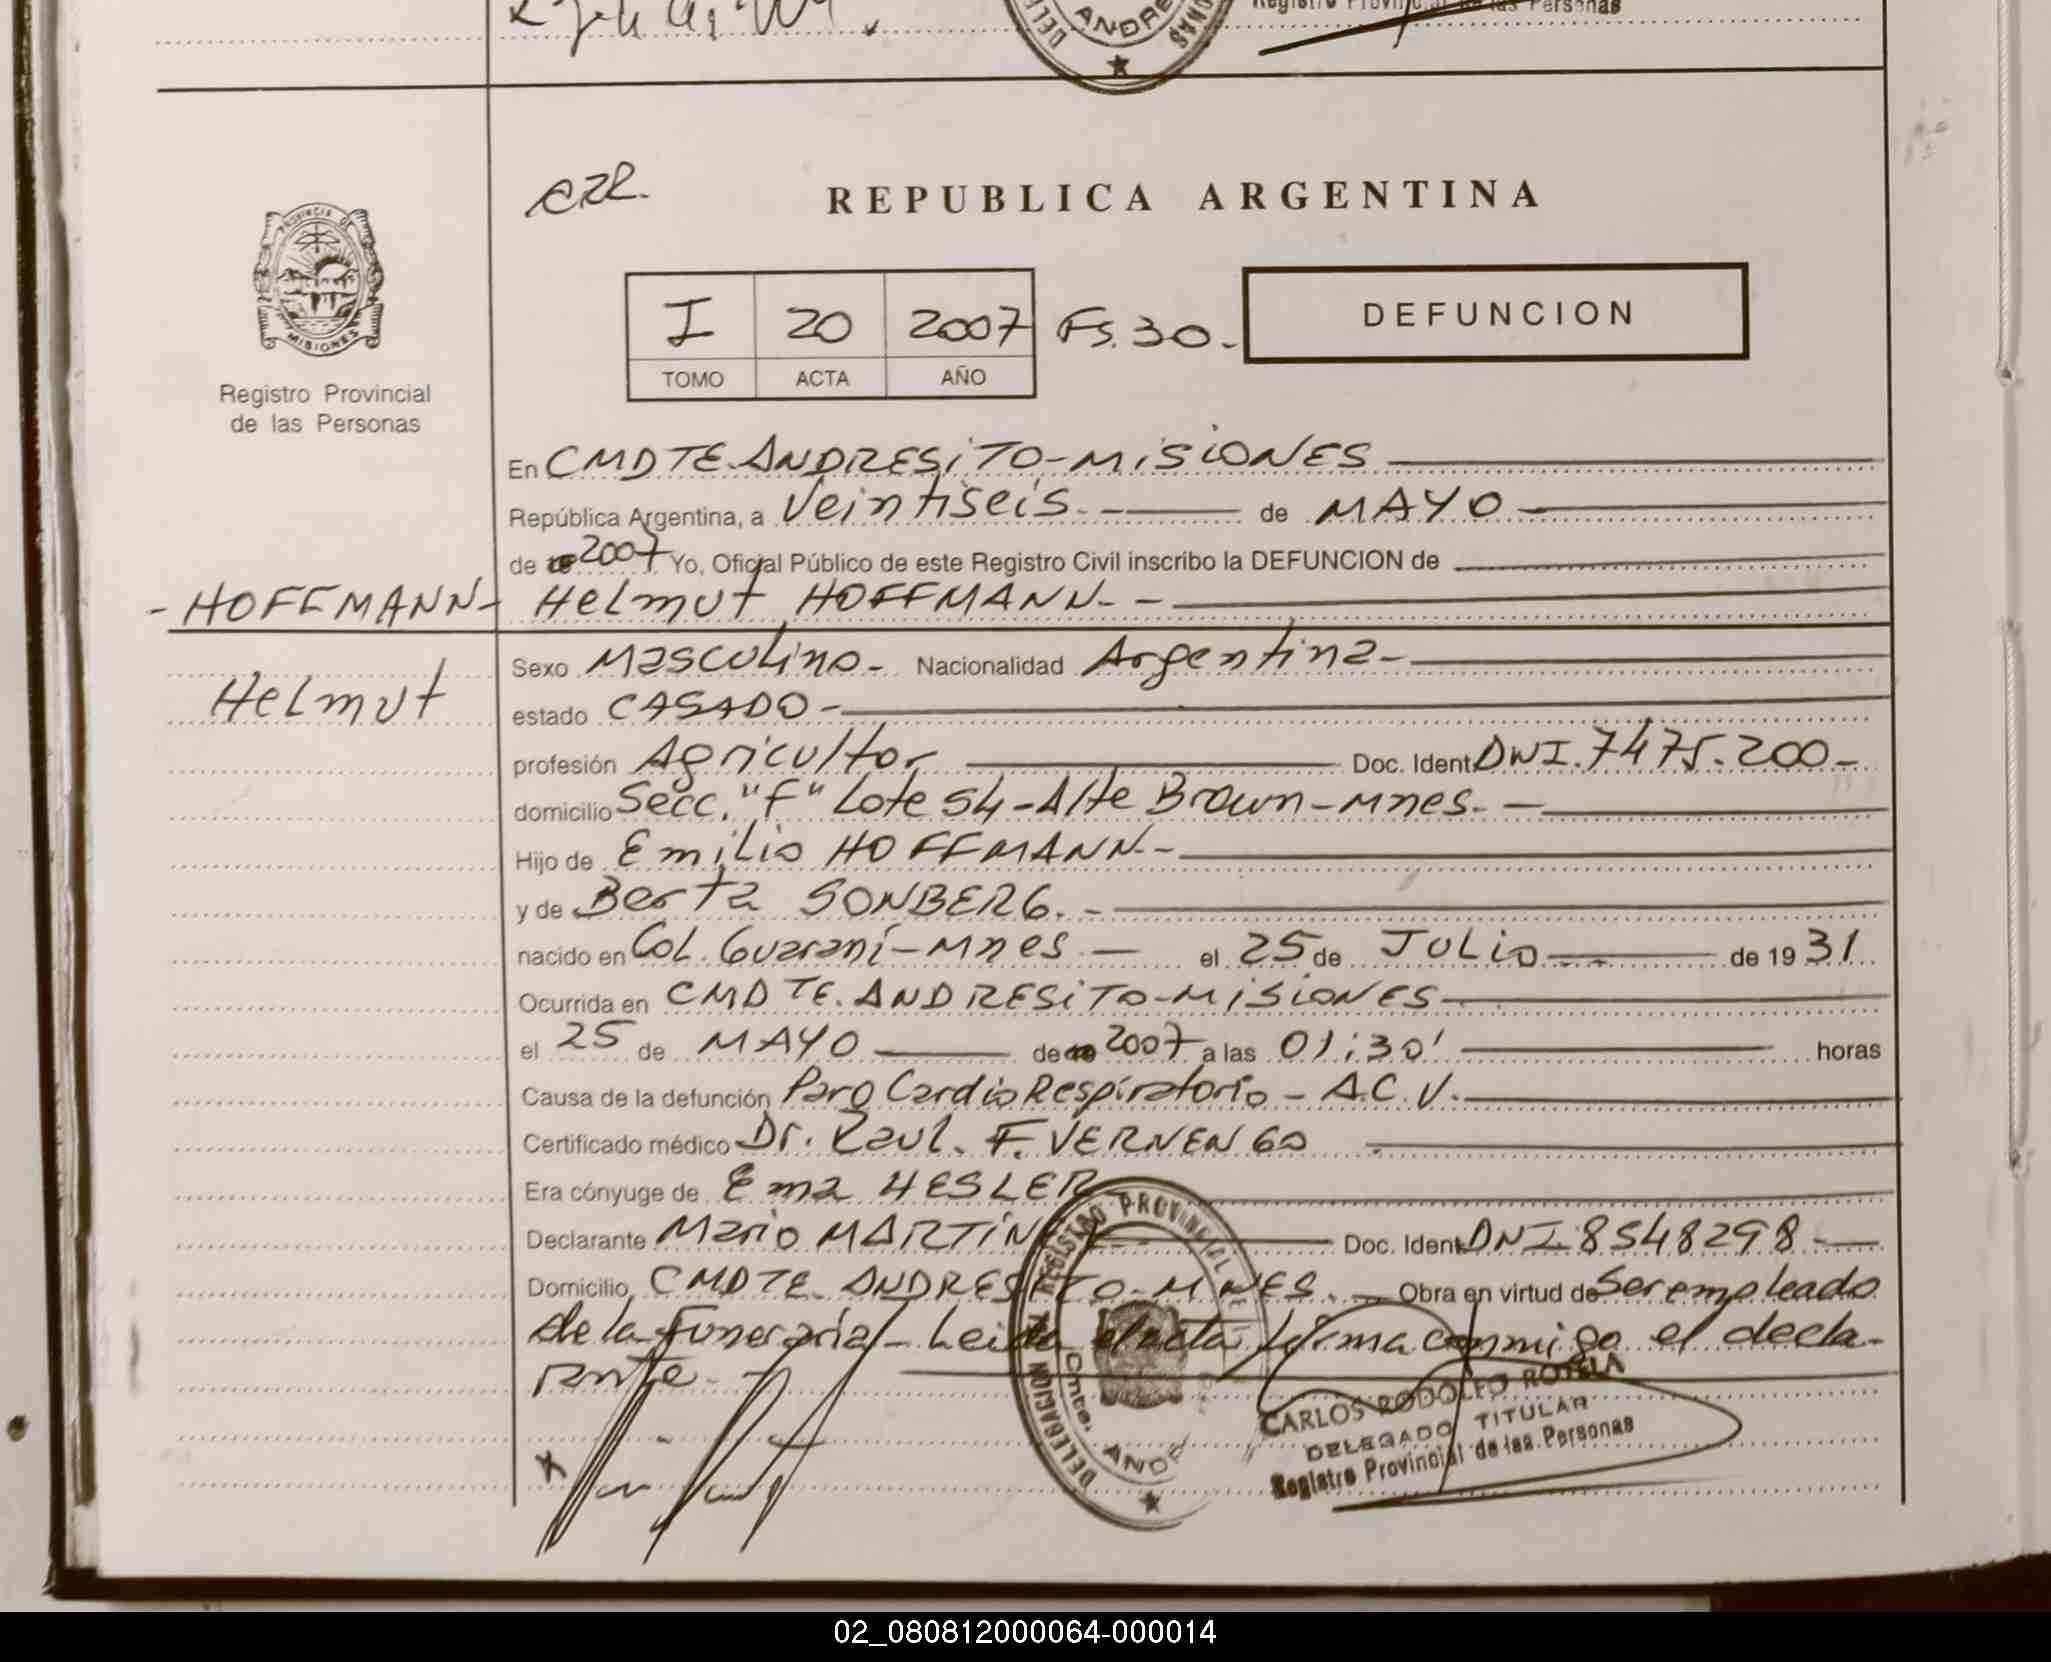 DELE
ANDRE
NAS
Registro Provincial de las Personas
REPUBLICA ARGENTINA
PROVINCIA DE
MISIONES
I 20 2007 Fs. 30.-
DEFUNCION
TOMO ACTA AÑO
Registro Provincial
de las Personas
En CMDTE. ANDRESITO-MISIONES
República Argentina, a Veintiseis.- de MAYO -
de 2007 Yo, Oficial Público de este Registro Civil inscribo la DEFUNCION de
- HOFFMANN - Helmut HOFFMANN.-
Sexo Masculino.- Nacionalidad Argentina-
Helmut
estado CASADO-
profesión Agricultor Doc. Ident. DNI. 7475.200-
domicilio Secc. "F" Lote 54-Alte Brown-Mnes.-
Hijo de Emilio HOFFMANN.-
y de Berta SONBERG.-
nacido en Col. Guaraní-Mnes - el 25 de JULIO de 19 31.
Ocurrida en CMDTE. ANDRESITO-MISIONES-
el 25 de MAYO de 2007 a las 01:30' horas
Causa de la defunción Paro Cardio Respiratorio - A.C.V.
Certificado médico Dr. Raul. F. VERNENGO
Era cónyuge de Ema HESLER
Declarante Mario MARTIN Doc. Ident. DNI. 8548298-
Domicilio CMDTE. ANDRESITO-MNES.- Obra en virtud de Ser empleado
de la Funeraria/- Leida el acta firma conmigo el decla-
rante.-
REGISTRO PROVINCIAL DE
DELEGACION
Cmte. ANDE
CARLOS RODOLFO ROTELA
DELEGADO TITULAR
Registro Provincial de las Personas
02_080812000064-000014